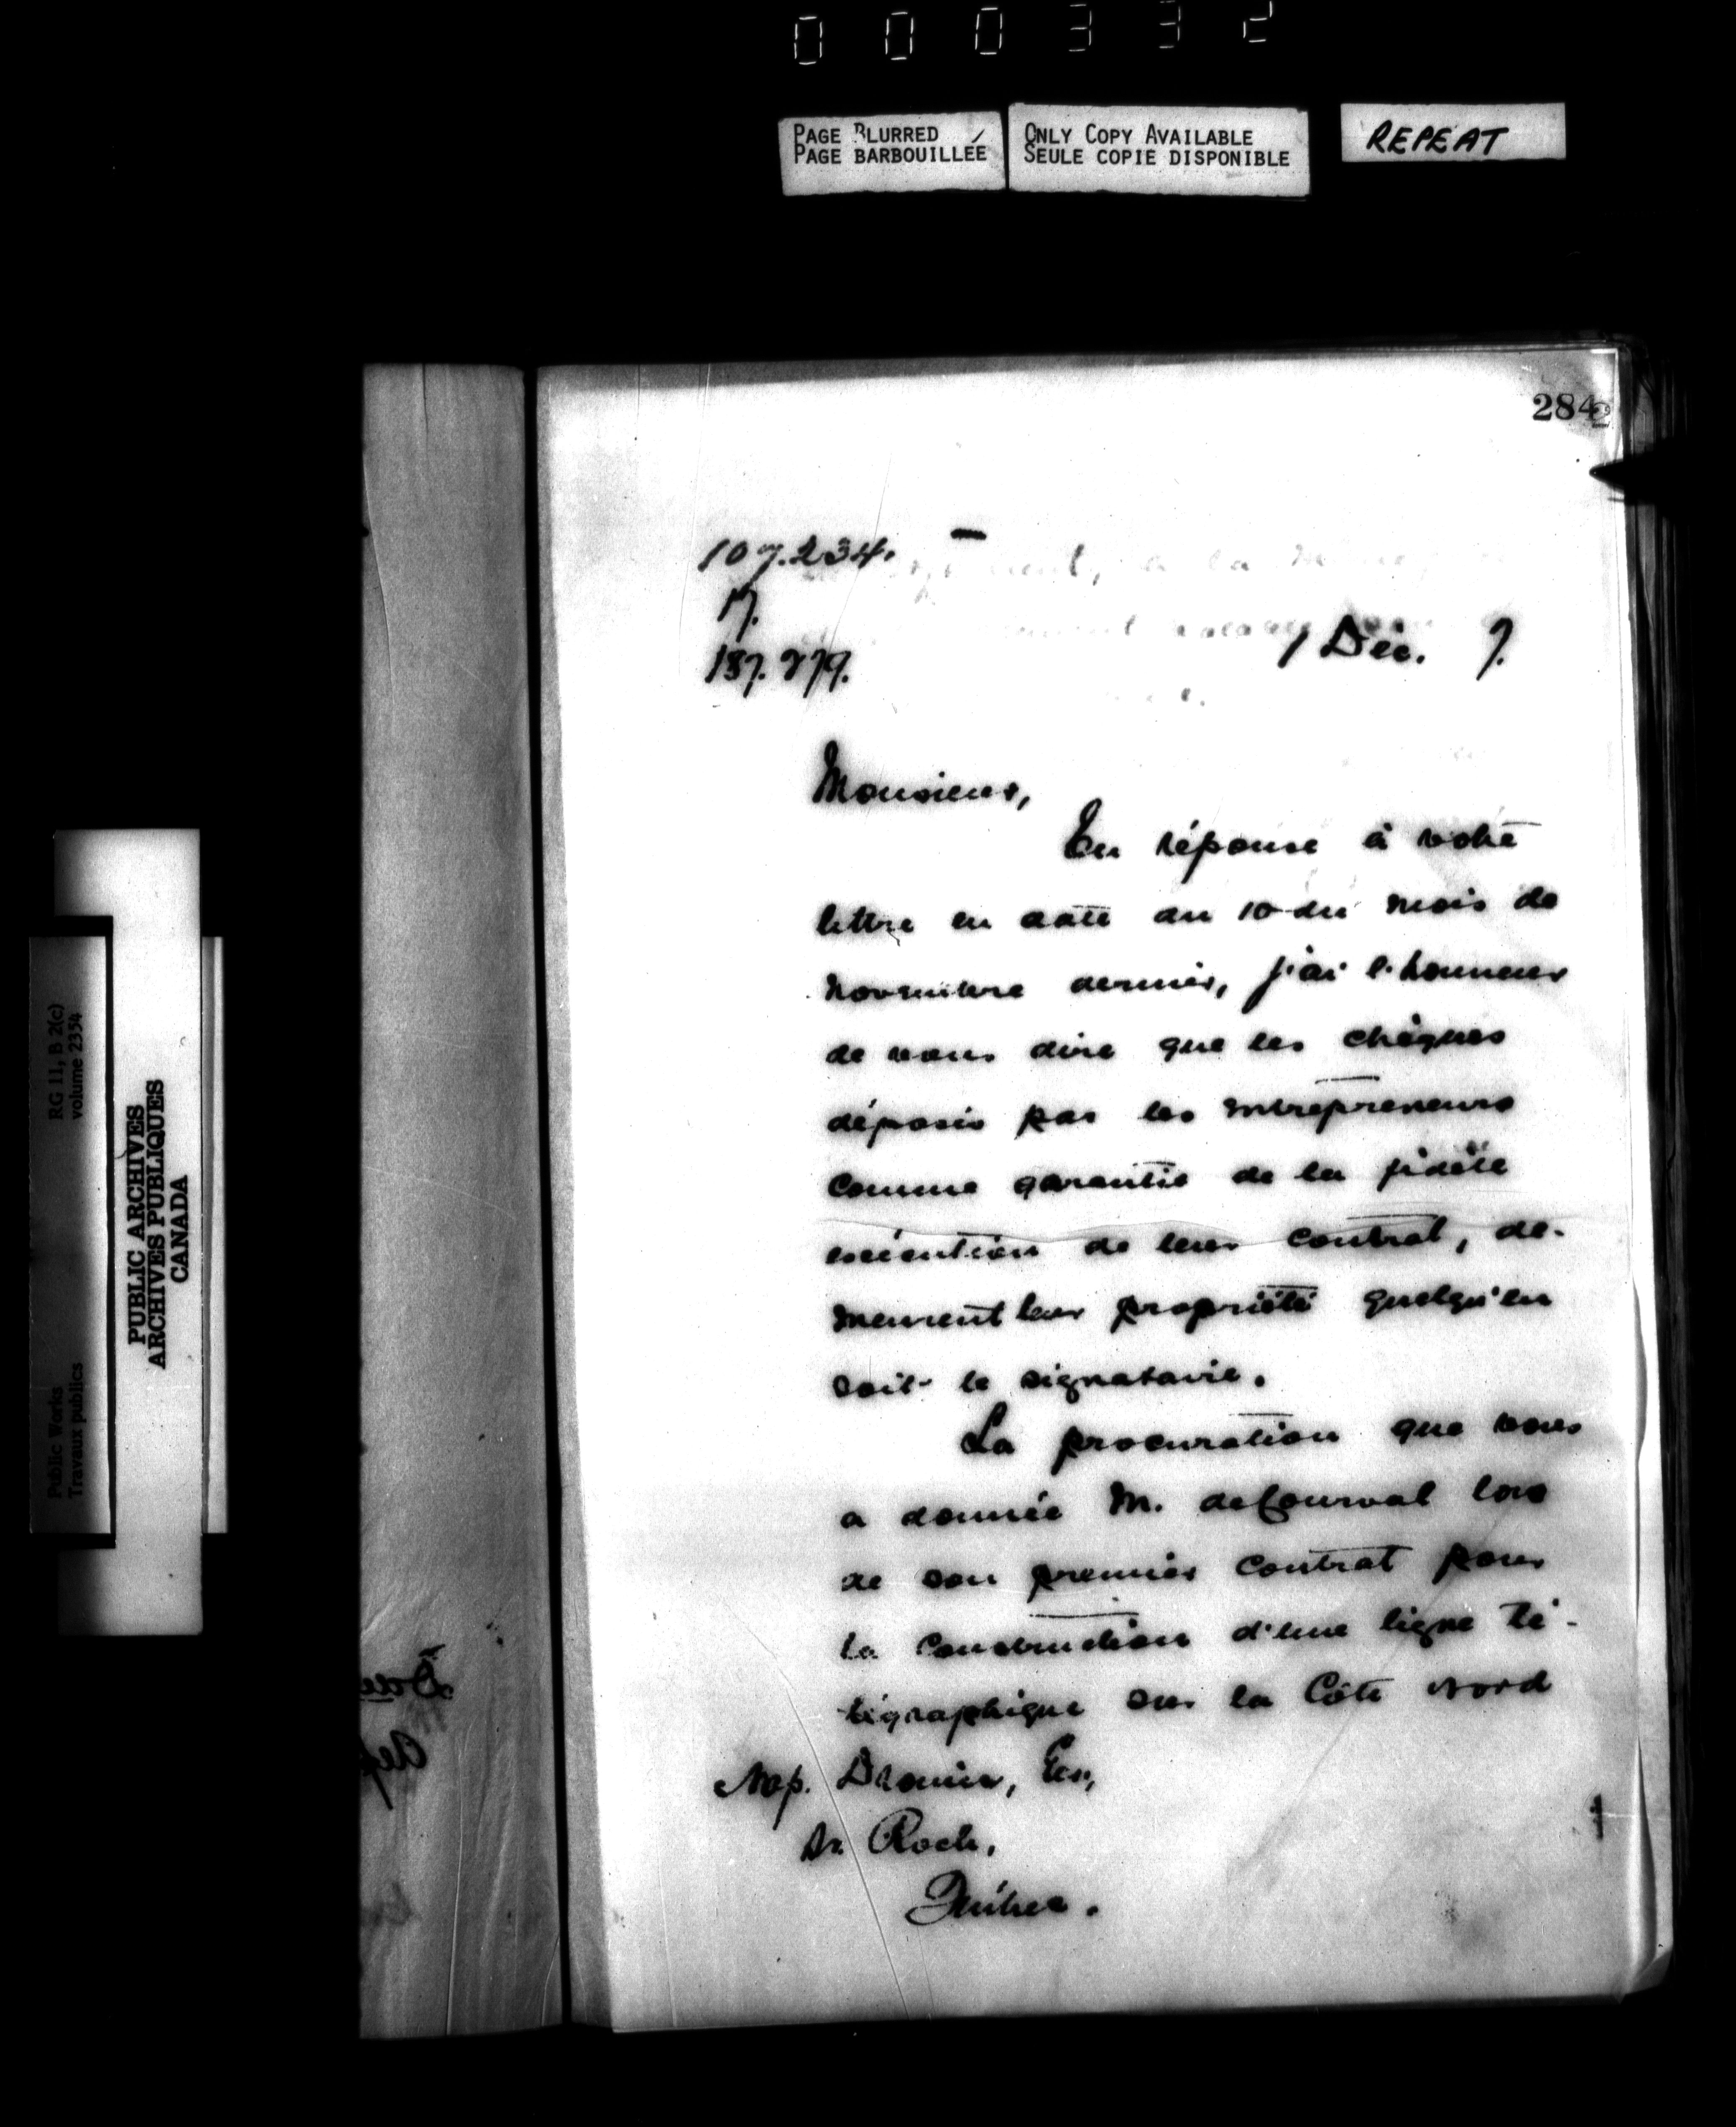 000332
PAGE BLURRED
PAGE BARBOUILLÉE
ONLY COPY AVAILABLE
SEULE COPIE DISPONIBLE
REPEAT
284
107.234.
17.
187.279.
1 Déc. 7.
Monsieur,
En réponse à votre
lettre en date du 10 du mois de
novembre dernier, j'ai l'honneur
de vous dire que les chèques
déposés par les entrepreneurs
comme garantie de la fidèle
exécution de leur contrat, de-
meurent leur propriété quelqu'en
soit le signataire.
La procuration que vous
a donnée M. de Courval lors
de son premier contrat pour
la construction d'une ligne té-
légraphique sur la Côte Nord
Nap. Drouin, Ecr,
St. Roch,
Québec.
RG 11, B 2(c)
volume 2354
Public Works
Travaux publics
PUBLIC ARCHIVES
ARCHIVES PUBLIQUES
CANADA